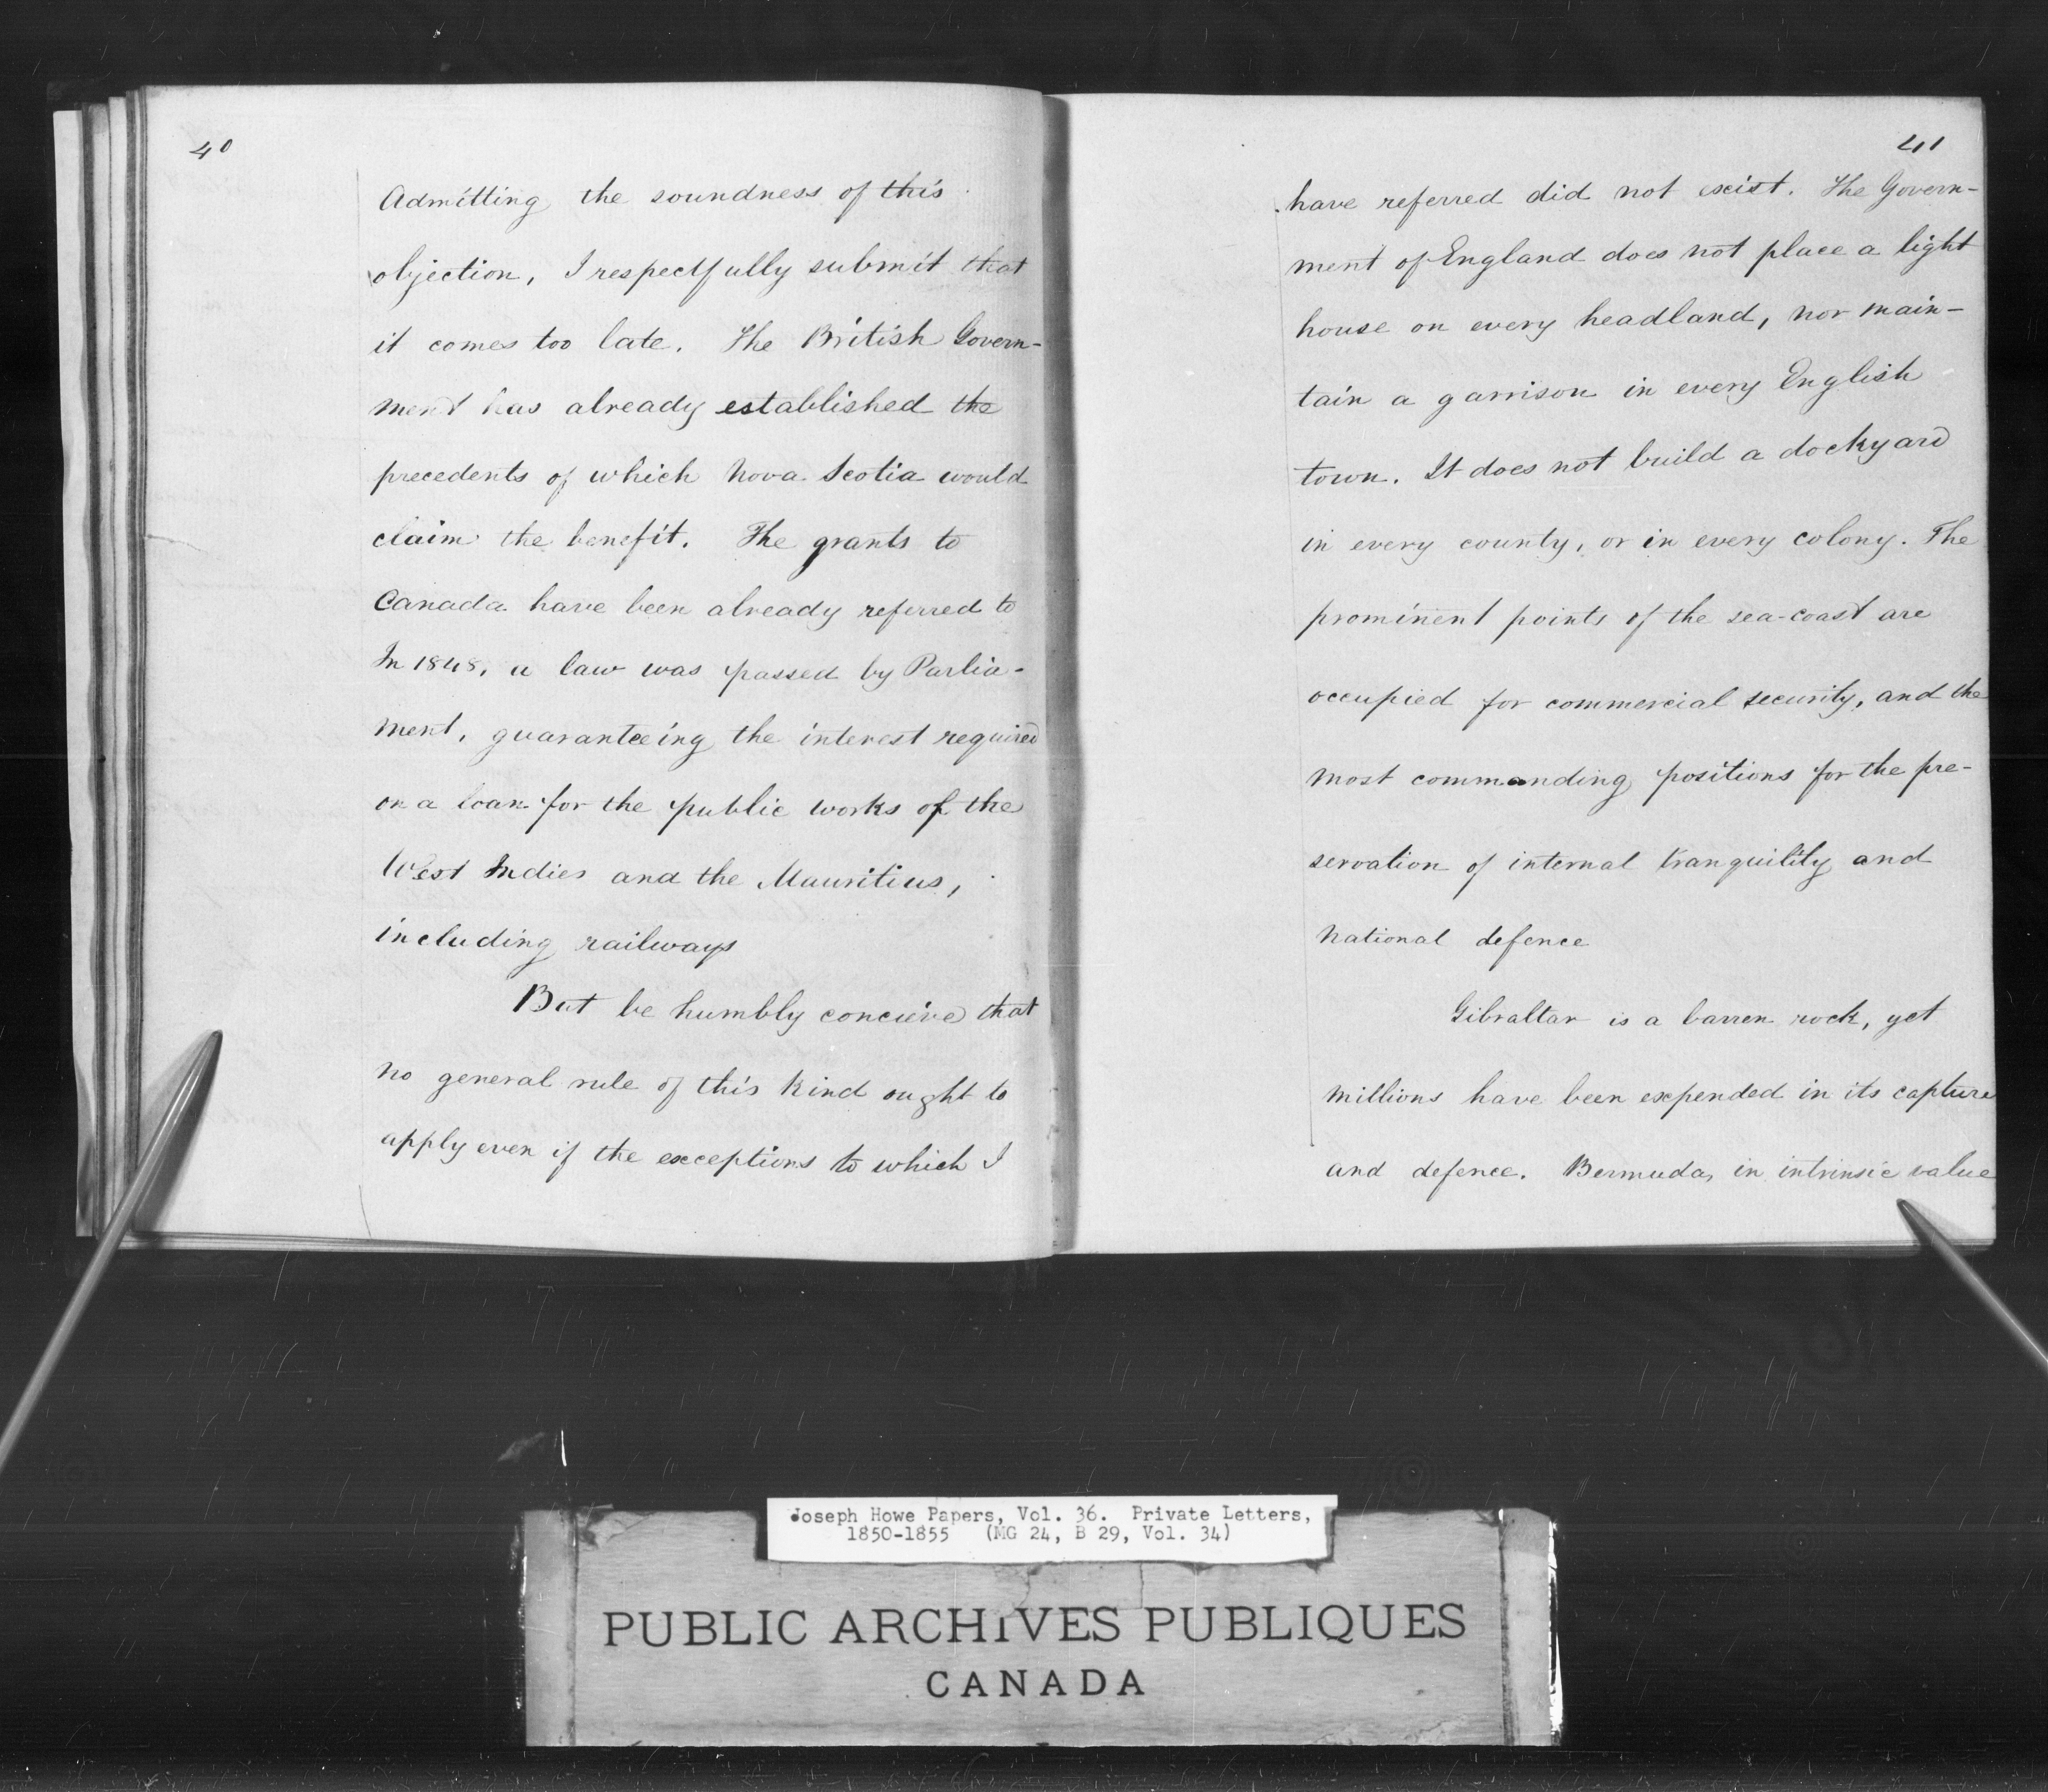 40
Admitting the soundness of this
objection, I respectfully submit that
it comes too late. The British Govern-
ment has already established the
precedents of which Nova Scotia would
claim the benefit. The grants to
Canada have been already referred to
In 1848, a law was passed by Parlia-
ment, guaranteeing the interest required
on a loan for the public works of the
West Indies and the Mauritius,
including railways
But be humbly concieve that
no general rule of this kind ought to
apply even if the exceptions to which I
41
have referred did not exist. The Govern-
ment of England does not place a light
house on every headland, nor main-
tain a garrison in every English
town. It does not build a dockyard
in every county, or in every colony. The
prominent points of the sea-coast are
occupied for commercial security, and the
most commanding positions for the pre-
servation of internal tranquility and
national defence
Gibraltar is a barren rock, yet
millions have been expended in its capture
and defence. Bermuda, in intrinsic value
Joseph Howe Papers, Vol. 36. Private Letters,
1850-1855 (MG 24, B 29, Vol. 34)
PUBLIC ARCHIVES PUBLIQUES
CANADA